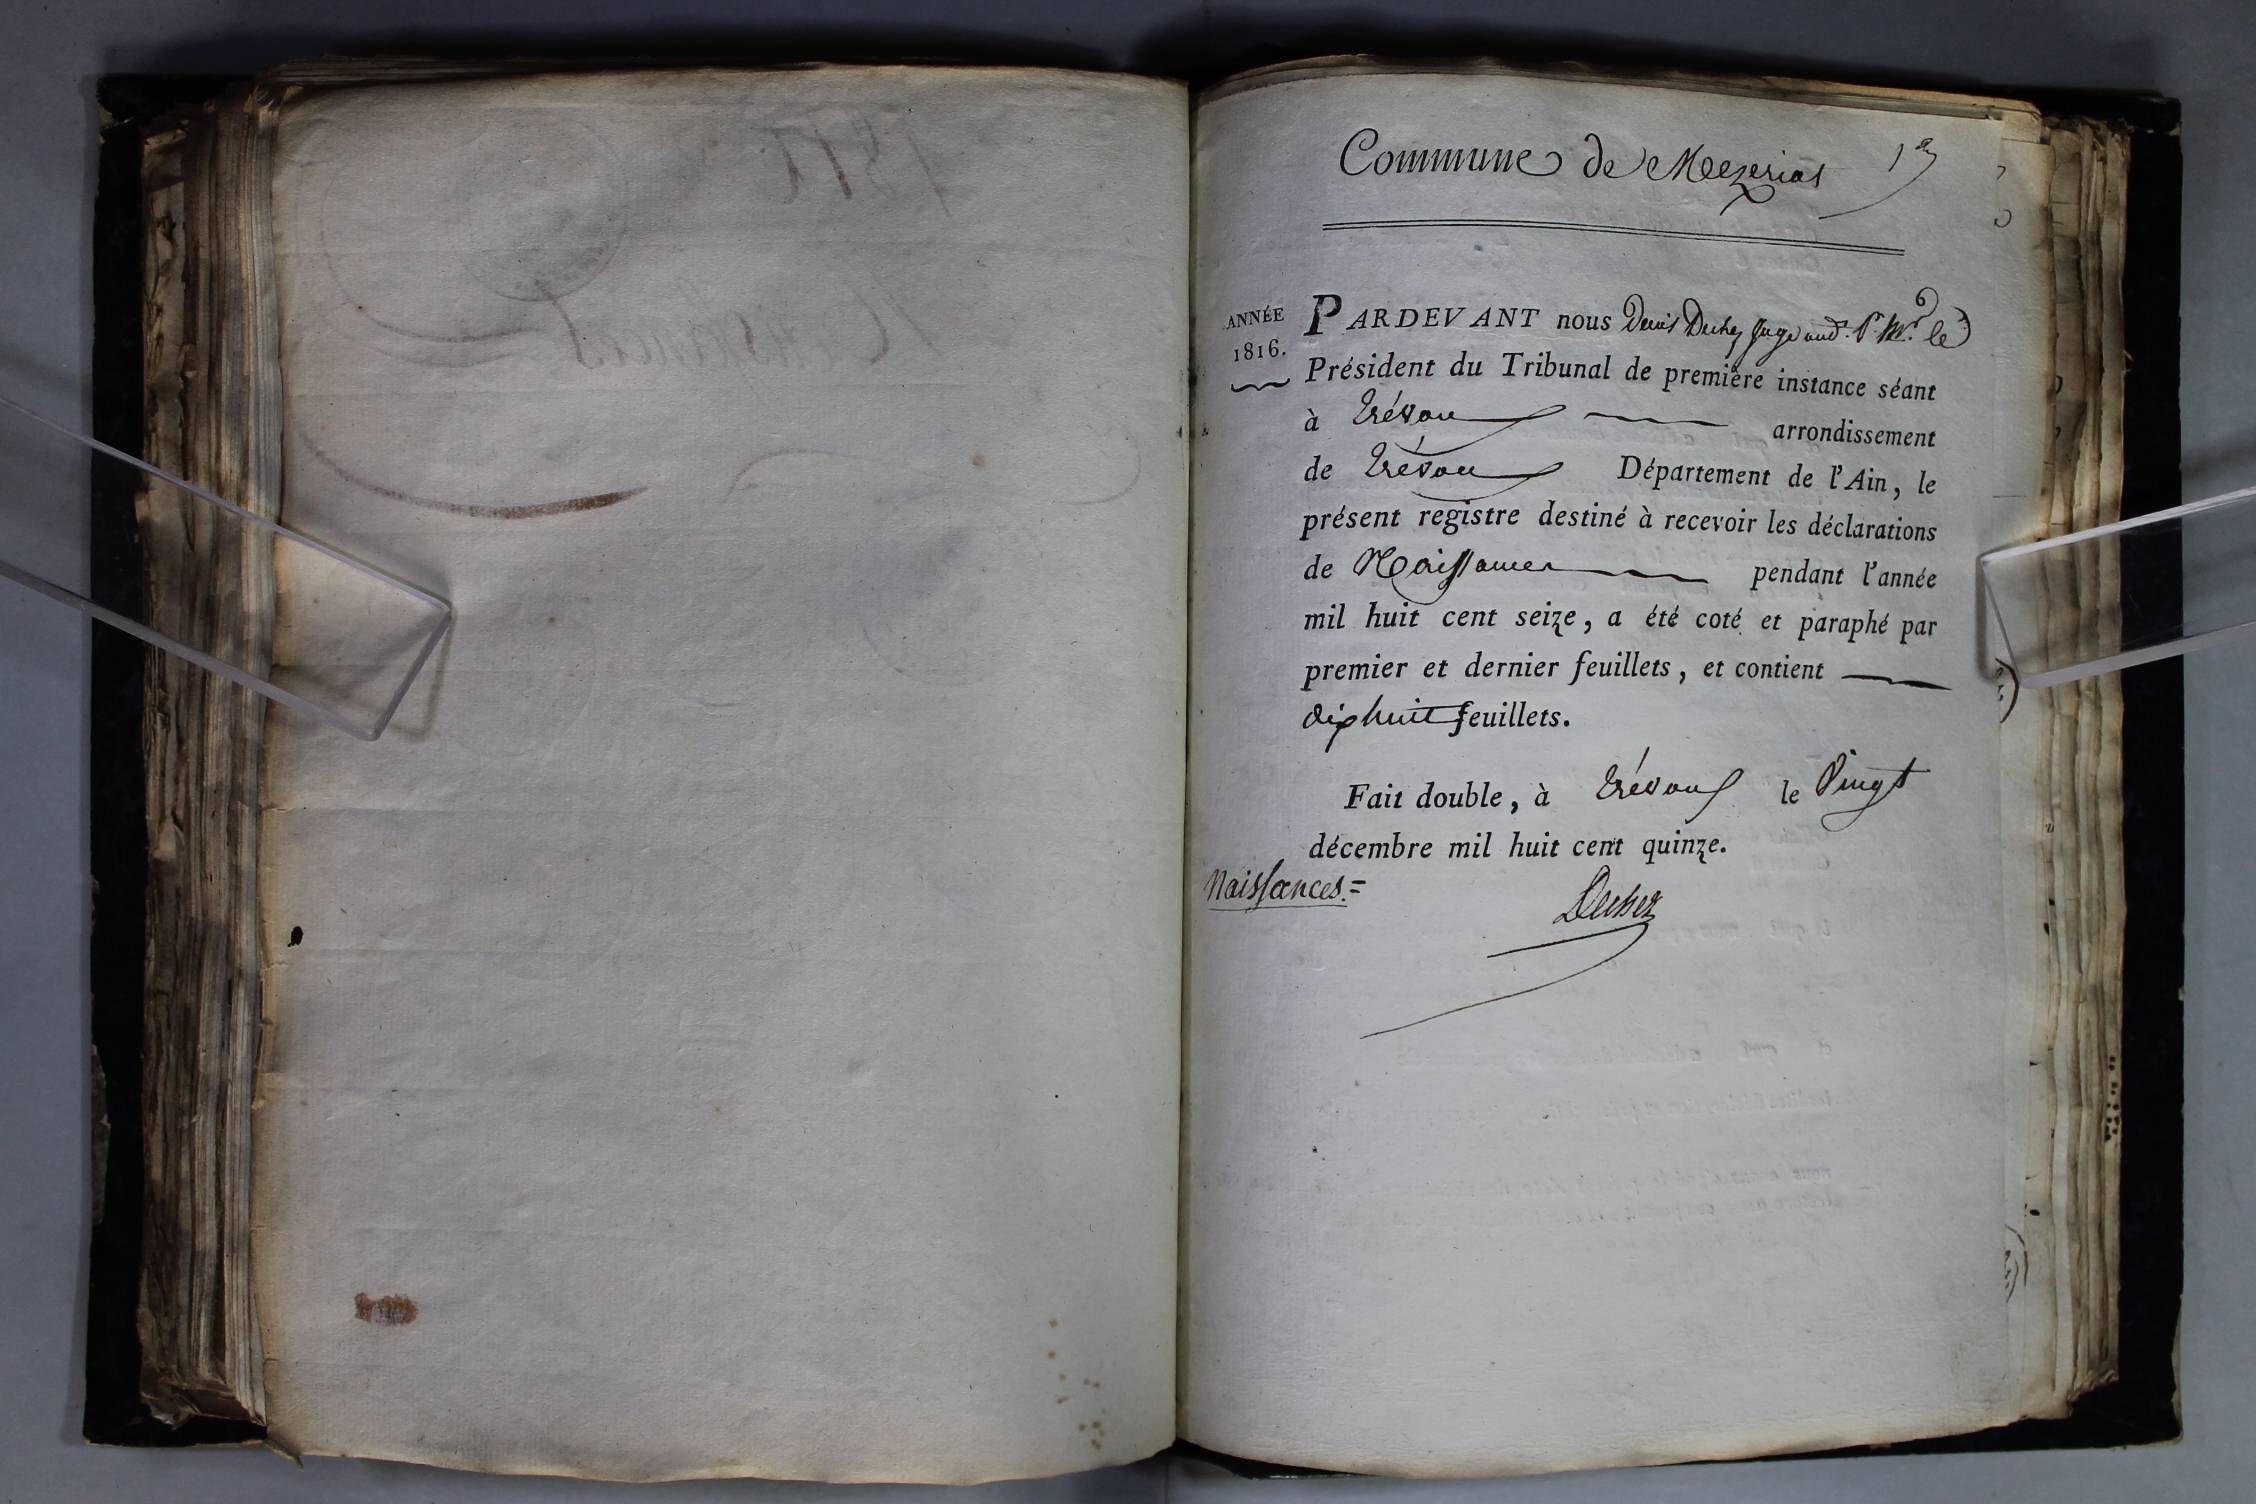 Commune de Mezeriat 1er
ANNÉE
1816.
PARDEVANT nous Denis Duchez Juge aud. Pr Mr. le
Président du Tribunal de première instance séant
à Trévoux arrondissement
de Trévoux Département de l'Ain, le
présent registre destiné à recevoir les déclarations
de Naissances pendant l'année
mil huit cent seize, a été coté et paraphé par
premier et dernier feuillets, et contient
dix huit feuillets.
Fait double, à Trévoux le Vingt
décembre mil huit cent quinze.
Naissances.=
Duchez